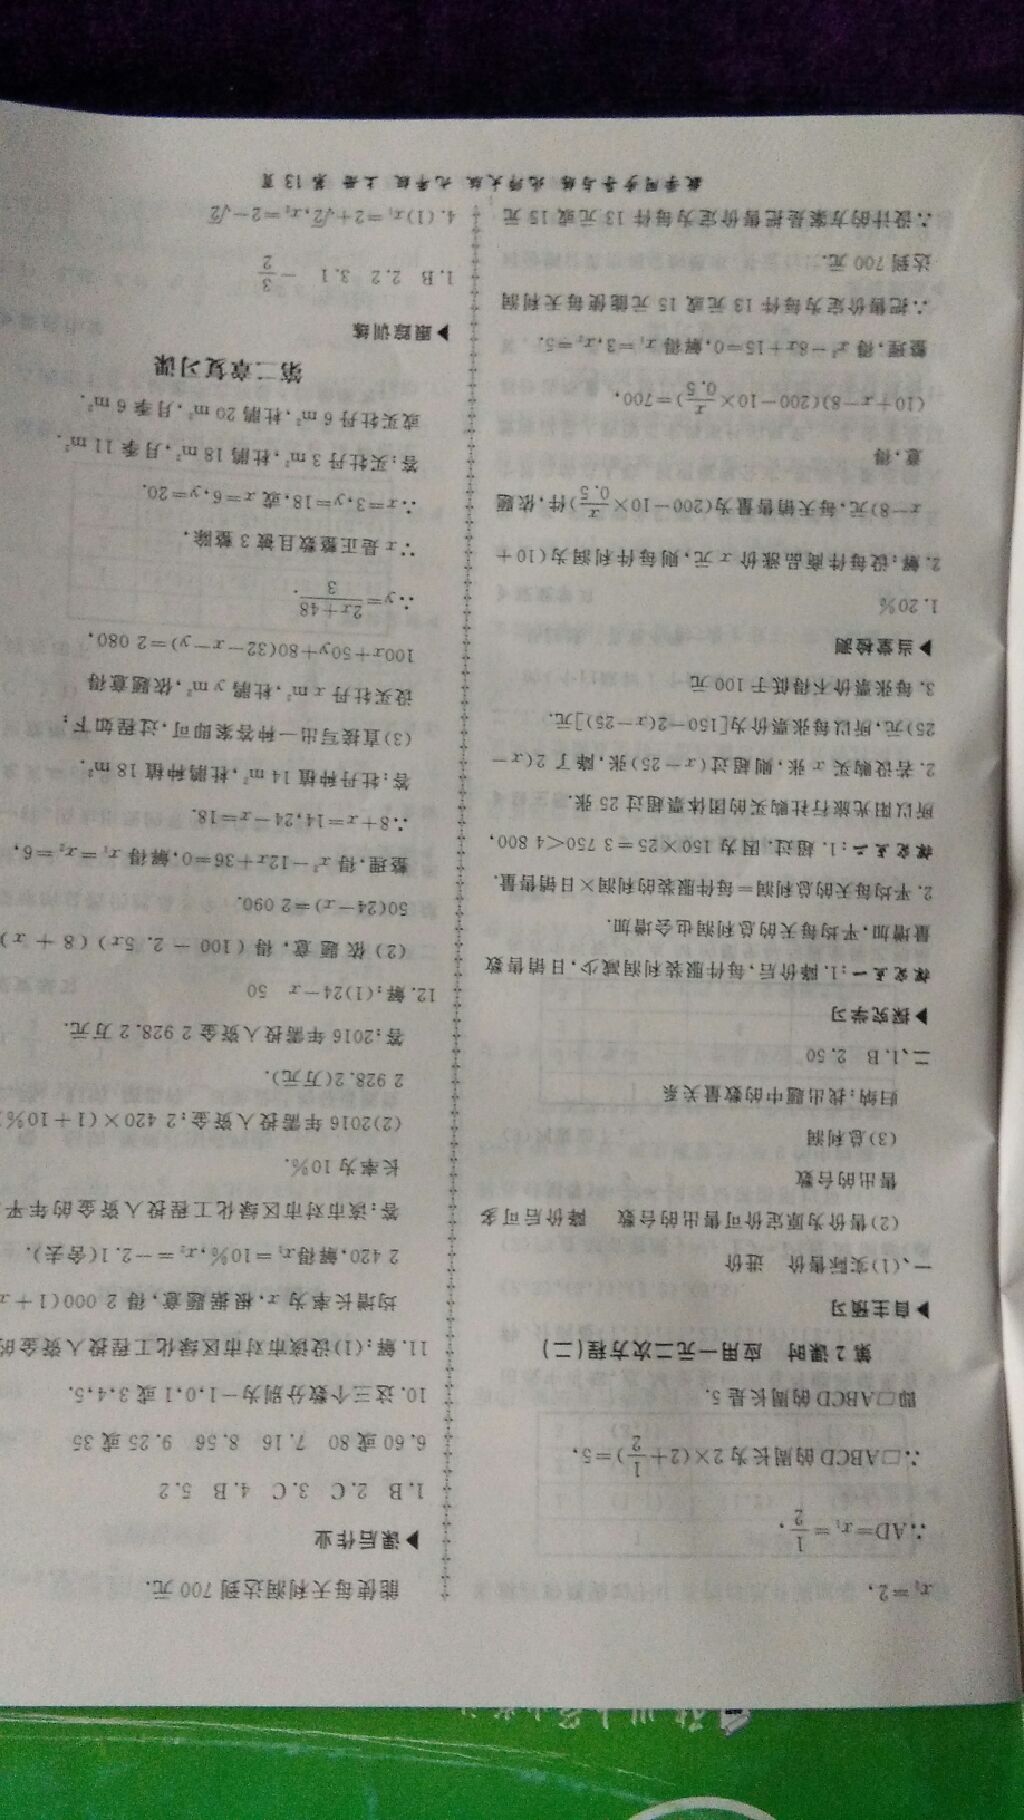 x₁=2,
∴AD=x₁=1/2,
∴□ABCD的周长为2×(2+1/2)=5,
即□ABCD的周长是5.
第2课时 应用一元二次方程(二)
▶自主预习
一、(1)实际售价 进价
(2)售价为原定价可售出的台数 降价后可多
售出的台数
(3)总利润
归纳:找出题中的数量关系
二、1.B 2.50
▶探究学习
探究点一:1.降价后,每件服装利润减少,日销售数
量增加,平均每天的总利润也会增加.
2.平均每天的总利润=每件服装的利润×日销售量.
探究点二:1.超过.因为150×25=3 750<4 800,
所以阳光旅行社购买的团体票超过25张.
2.若设购买x张,则超过(x-25)张,降了2(x-
25)元,所以每张票价为[150-2(x-25)]元.
3.每张票价不得低于100元
▶当堂检测
1.20%
2.解:设每件商品涨价x元,则每件利润为(10+
x-8)元,每天销售量为(200-10×x/0.5)件,依题
意,得
(10+x-8)(200-10×x/0.5)=700,
整理,得x²-8x+15=0,解得x₁=3,x₂=5.
∴把售价定为每件13元或15元能使每天利润
达到700元.
∴设计的方案是把售价定为每件13元或15元
能使每天利润达到700元.
▶课后作业
1.B 2.C 3.C 4.B 5.2
6.60或80 7.16 8.56 9.25或35
10.这三个数分别为-1,0,1或3,4,5.
11.解:(1)设该市对市区绿化工程投入资金的
均增长率为x,根据题意,得2 000(1+x
2 420,解得x₁=10%,x₂=-2.1(舍去).
答:该市对市区绿化工程投入资金的年平
长率为10%.
(2)2016年需投入资金:2 420×(1+10%
2 928.2(万元).
答:2016年需投入资金2 928.2万元.
12.解:(1)24-x 50
(2)依题意,得(100-2.5x)(8+x)
50(24-x)=2 090.
整理,得x²-12x+36=0,解得x₁=x₂=6,
∴8+x=14,24-x=18.
答:牡丹种植14m²,杜鹃种植18m².
(3)直接写出一种答案即可,过程如下:
设买牡丹xm²,杜鹃ym²,依题意得
100x+50y+80(32-x-y)=2 080,
∴y=(2x+48)/3.
∵x是正整数且被3整除,
∴x=3,y=18,或x=6,y=20.
答:买牡丹3m²,杜鹃18m²,月季11m².
或买牡丹6m²,杜鹃20m²,月季6m².
第二章复习课
▶跟踪训练
1.B 2.2 3.1 -3/2
4.(1)x₁=2+√2,x₂=2-√2
数学同步学与练 北师大版 九年级 上册 第13页